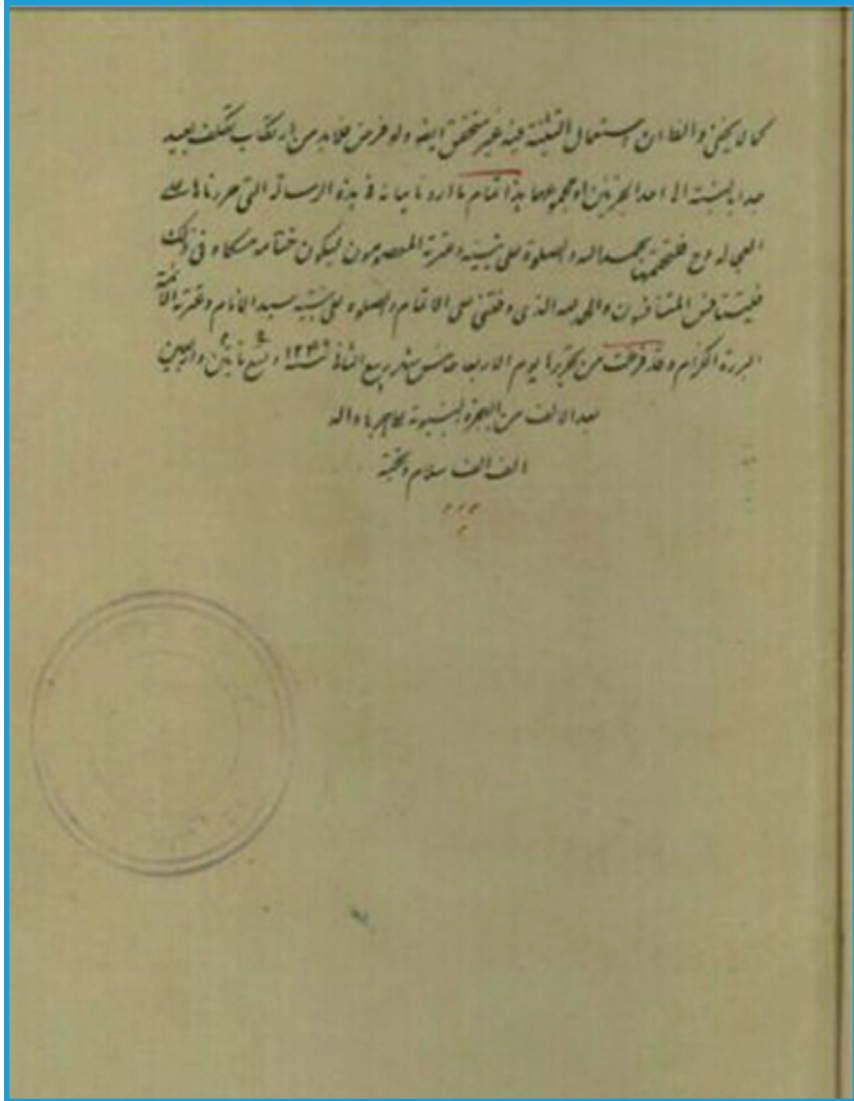 كما لا يخفى والظ ان استعمال التثنية فيه غير متحقق ايضا ولو فرض فلابد من ارتكاب تكلف بعيد
جدا بالنسبة الى احد الجزئين او مجموعهما هذا تمام ما اردنا بيانه في هذه الرسالة التي حررناها على
العجالة وح فنختمها بحمد الله والصلوة على نبيه وعترة المعصومون ليكون ختامه مسكا وفي ذلك
فليتنافس المتنافسون والحمد لله الذى وفقني على الاتمام والصلوة على نبيه سيد الانام وعترته الائمة
البررة الكرام وقد فرغت من تحريرها يوم الاربعا خامس شهر ربيع الثاني سنة ١٢٤٩ تسع مأتين واربعين
بعد الالف من الهجرة النبوية على هاجرها واله
الف الف سلام وتحية